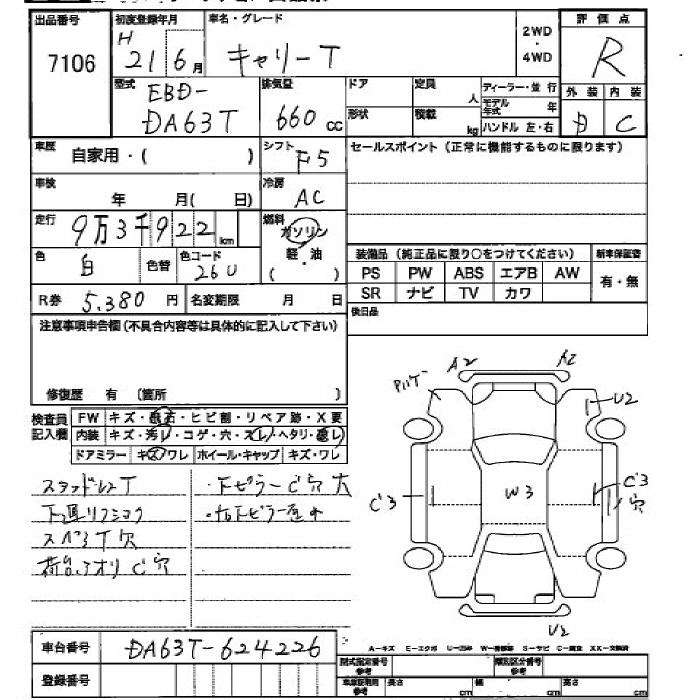 出品番号 初度登録年月 車名・グレード 2WD・4WD 評価点
7106 H 21年6月 キャリーT R
型式 排気量 ドア 定員 人 ディーラー・並行 外装 内装
EBD-
DA63T 660cc 形状 積載 kg モデル年式 年 ハンドル 左・右 C
車歴 自家用・( ) シフト F5 セールスポイント (正常に機能するものに限ります)
車検 年 月( 日) 冷房 AC
走行 9万3千922km 燃料 ガソリン
色 白 色替 色コード 26U 軽・油 ( )
装備品 (純正品に限り○をつけてください) 新車保証書
PS PW ABS エアB AW 有・無
SR ナビ TV カワ
R券 5.380円 名変期限 月 日
後日品
注意事項申告欄(不具合内容等は具体的に記入して下さい)
修復歴 有 (箇所 )
検査員記入欄 FW キズ・飛石・ヒビ割・リペア跡・X要
内装 キズ・汚レ・コゲ・穴・スレ・ヘタリ・悪レ
ドアミラー キズ・ワレ ホイール・キャップ キズ・ワレ
A2 A2
U2
C3 W3 C3 穴
U2
スタッドレスT ・下ピラーC穴大
スペアT穴
荷台、アオリC穴
車台番号 DA63T-624226
A-キズ E-エクボ U-凹み W-補修跡 S-サビ C-腐食 XX-交換済
登録番号 型式指定番号 参考 類別区分番号 参考
車庫証明用 参考 長さ cm 幅 cm 高さ cm